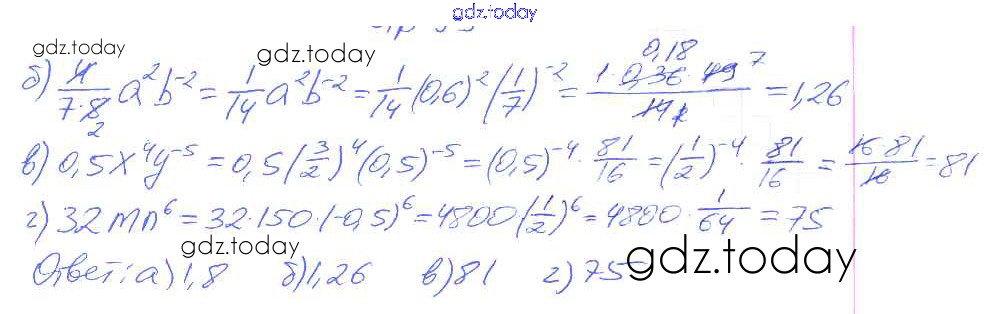 gdz.today
gdz.today
gdz.today
б) 4/(7·8) a²b⁻² = 1/14 a²b⁻² = 1/14 (0,6)² (1/7)⁻² = (1·0,36·49)/14 = 1,26
в) 0,5x⁴y⁻⁵ = 0,5(3/2)⁴(0,5)⁻⁵ = (0,5)⁻⁴ · 81/16 = (1/2)⁻⁴ · 81/16 = (16·81)/16 = 81
г) 32mn⁶ = 32·150·(-0,5)⁶ = 4800·(1/2)⁶ = 4800 · 1/64 = 75
gdz.today
Ответ: а) 1,8 б) 1,26 в) 81 г) 75
gdz.today